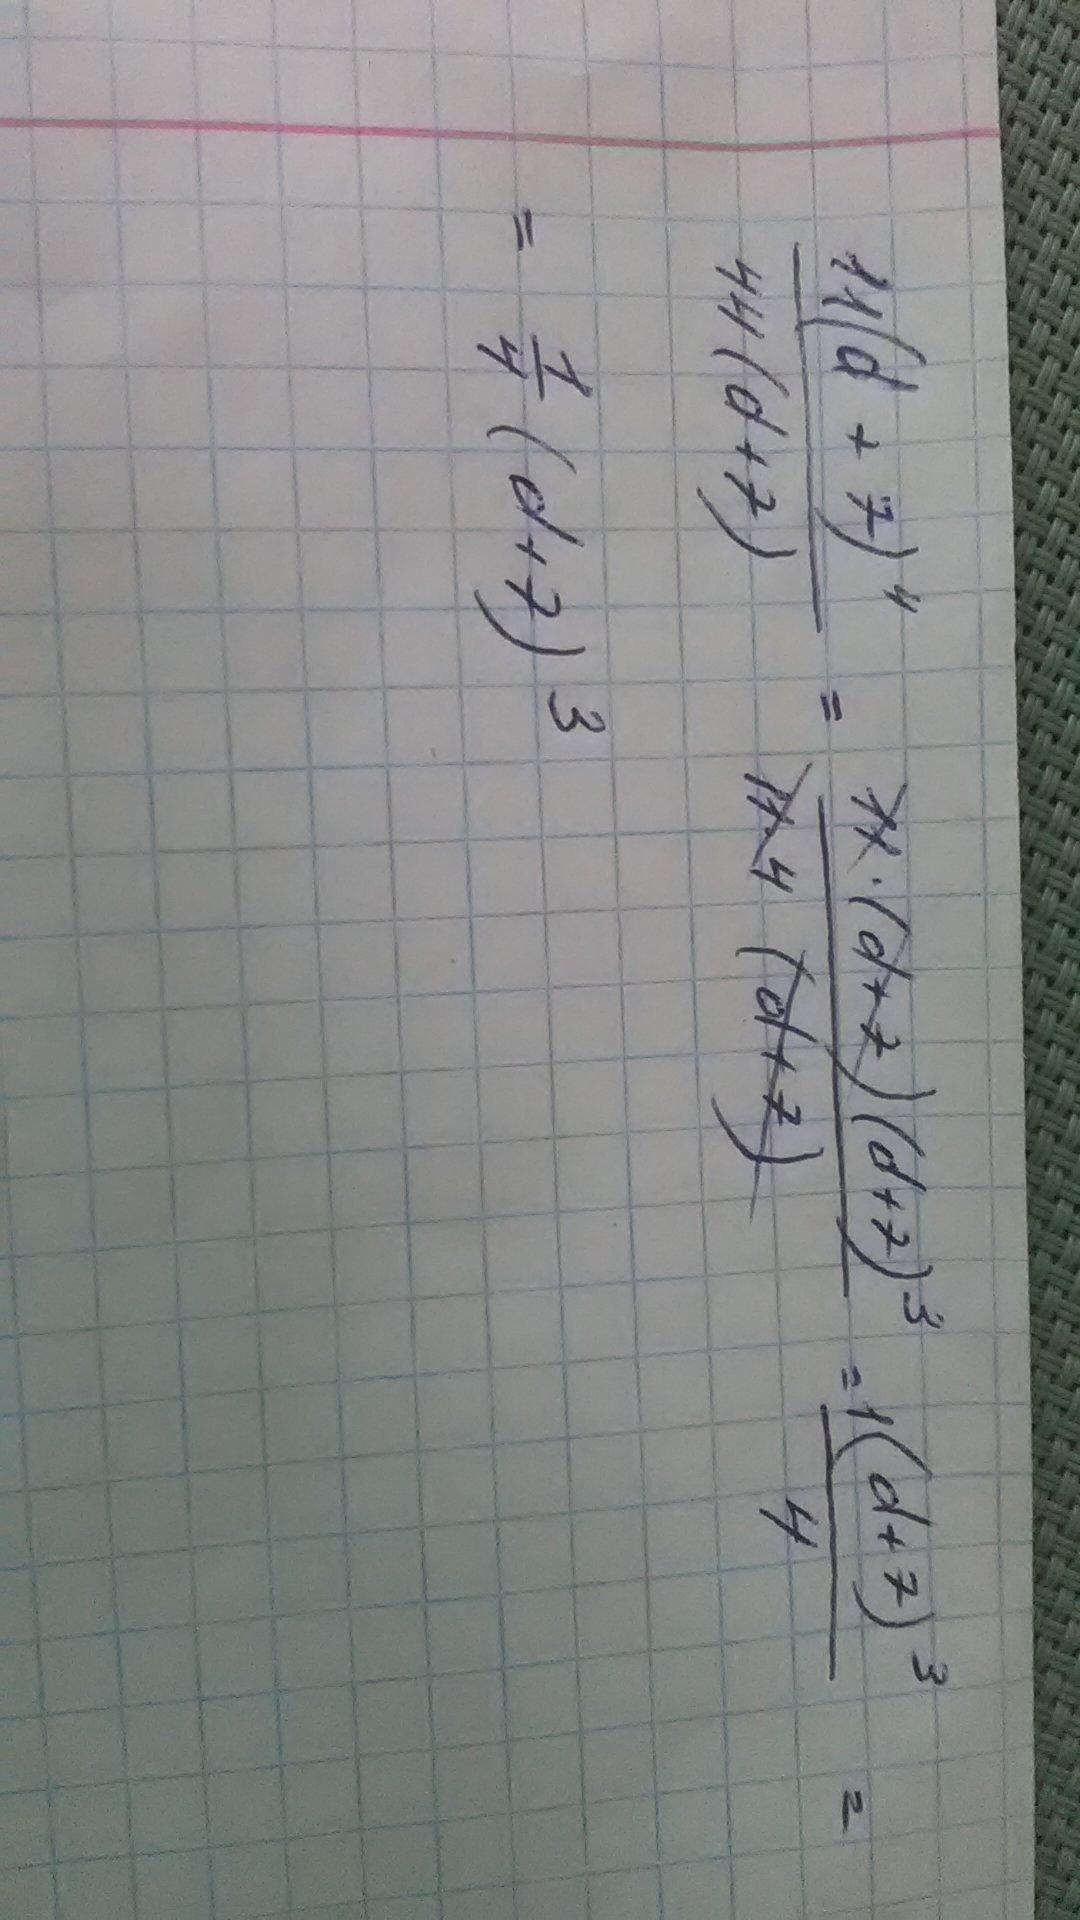 11(d + 7)⁴ / 44(d+7) = 11·(d+7)(d+7)³ / 11·4 (d+7) = 1(d+7)³ / 4 =
= 1/4 (d+7)³